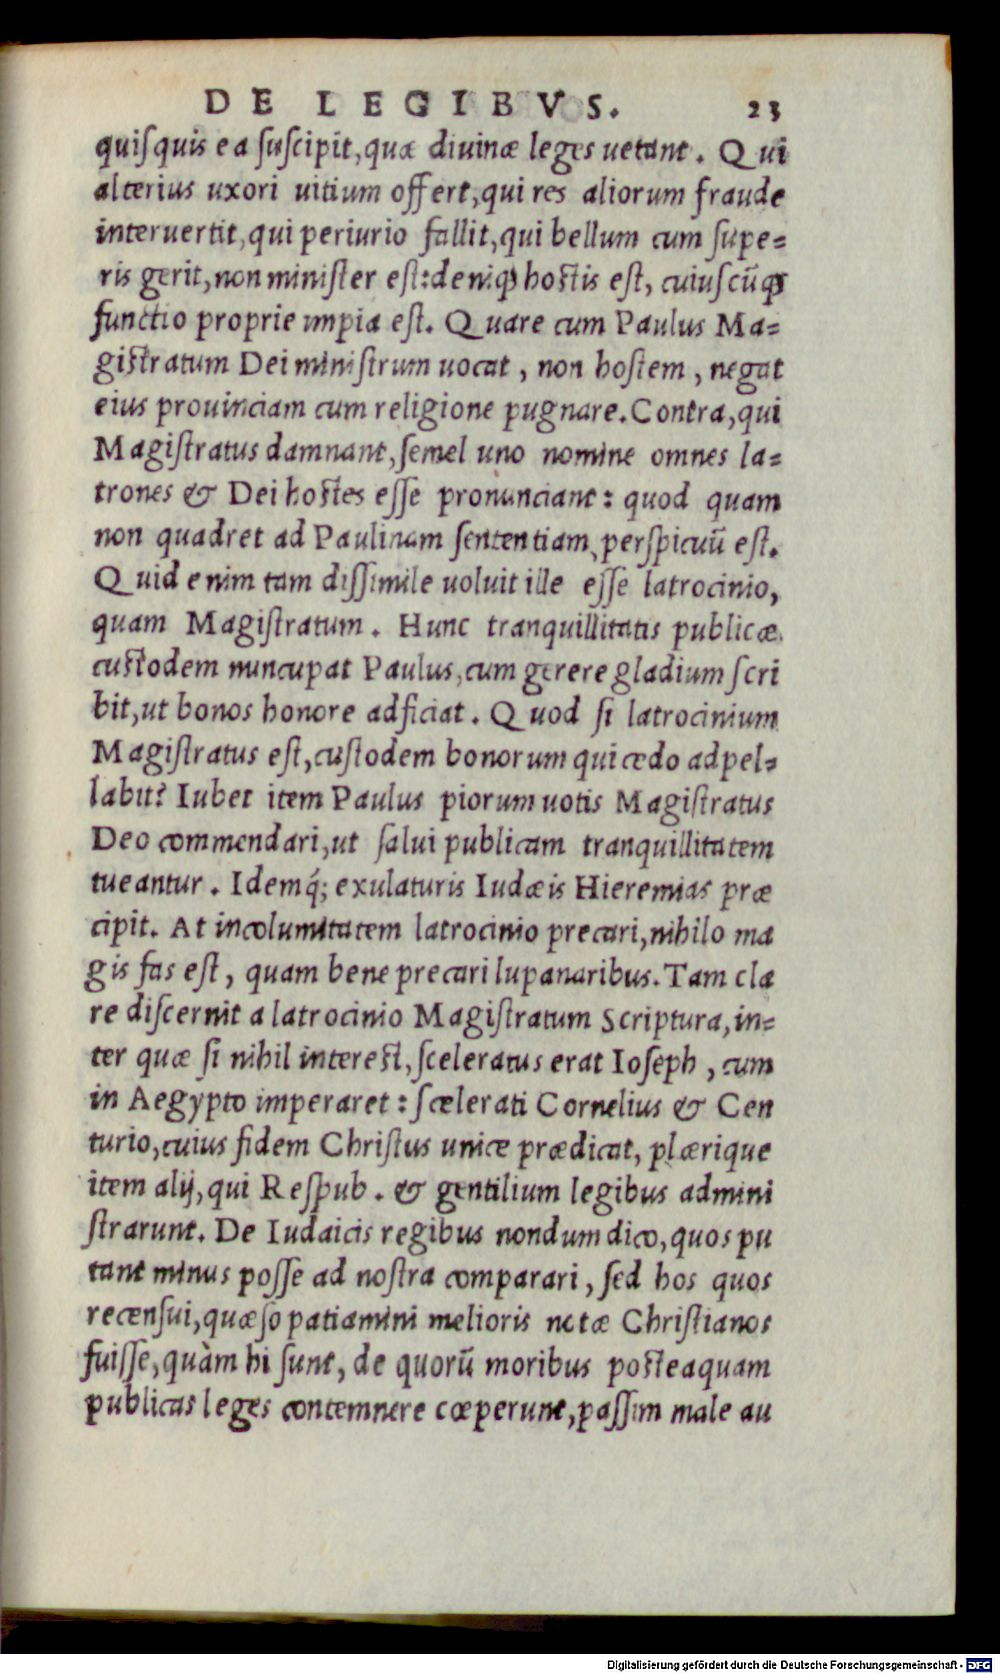 DE LEGIBVS. 23
quiſquis ea ſuſcipit,quæ diuinæ leges uetant. Qui
alterius uxori uitium offert,qui res aliorum fraude
interuertit,qui periurio fallit,qui bellum cum ſupe=
ris gerit,non miniſter eſt:deniqꝫ hoſtis eſt, cuiuſcūqꝫ
functio proprie impia eſt. Quare cum Paulus Ma=
giſtratum Dei miniſtrum uocat, non hoſtem, negat
eius prouinciam cum religione pugnare. Contra,qui
Magiſtratus damnant,ſemel uno nomine omnes la=
trones & Dei hoſtes eſſe pronunciant: quod quam
non quadret ad Paulinam ſententiam, perſpicuū eſt.
Quid enim tam diſſimile uoluit ille eſſe latrocinio,
quam Magiſtratum. Hunc tranquillitatis publicæ
cuſtodem nuncupat Paulus,cum gerere gladium ſcri
bit,ut bonos honore adficiat. Quod ſi latrocinium
Magiſtratus eſt,cuſtodem bonorum qui cedo adpel=
labit? Iubet item Paulus piorum uotis Magiſtratus
Deo commendari,ut ſalui publicam tranquillitatem
tueantur. Idemq́; exulaturis Iudæis Hieremias præ
cipit. At incolumitatem latrocinio precari,nihilo ma
gis fas eſt, quam bene precari lupanaribus. Tam cla
re diſcernit a latrocinio Magiſtratum Scriptura,in=
ter quæ ſi nihil intereſt,ſceleratus erat Ioſeph, cum
in Aegypto imperaret: ſcelerati Cornelius & Cen
turio,cuius fidem Chriſtus unice prædicat, plærique
item alij,qui Reſpub. & gentilium legibus admini
ſtrarunt. De Iudaicis regibus nondum dico,quos pu
tant minus poſſe ad noſtra comparari, ſed hos quos
recenſui,quæſo patiamini melioris notæ Chriſtianos
fuiſſe,quàm hi ſunt, de quorū moribus poſteaquam
publicas leges contemnere cœperunt,paſſim male au
Digitalisierung gefördert durch die Deutsche Forschungsgemeinschaft - DFG